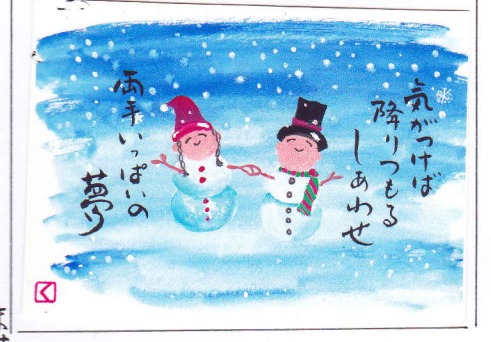 気がつけば
降りつもる
しあわせ
両手いっぱいの
夢
く